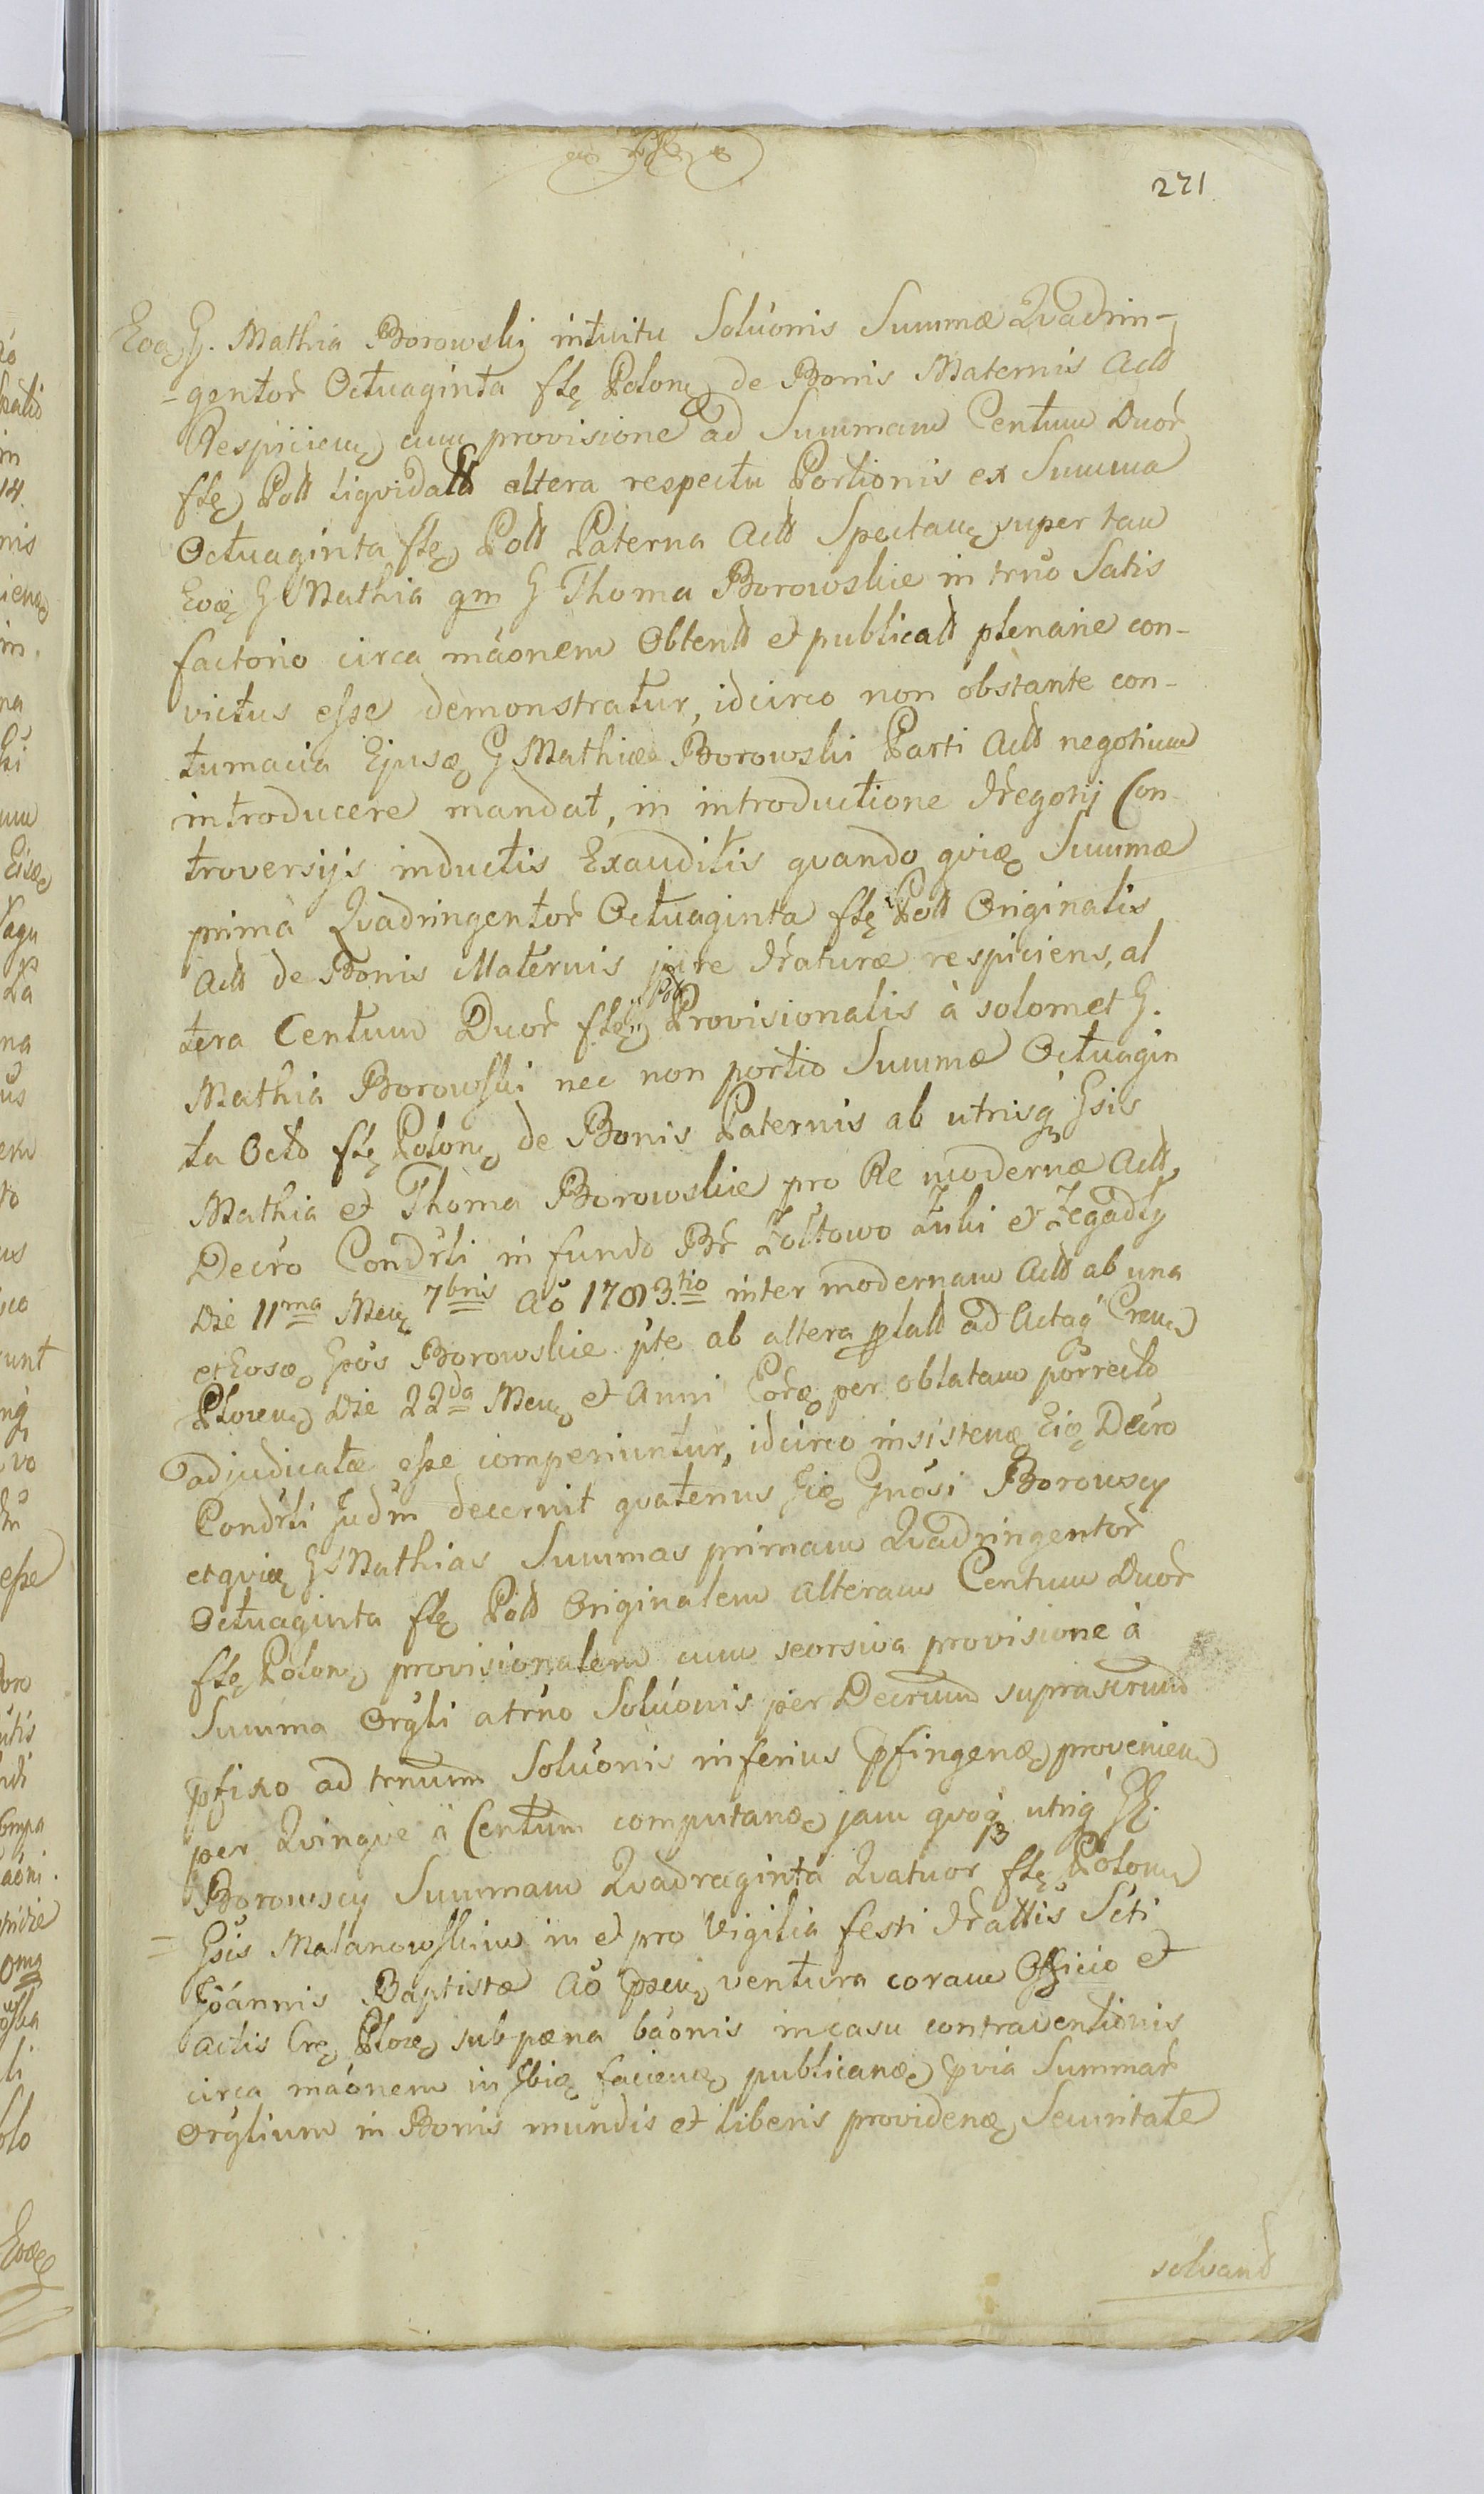 271
Eoq G. Mathia Borowskij intuitu Soluonis Summæ Quadrin-
-gentor Octuaginta flę Polonę de Bonis Maternis Actt
Respicienę cum provisione ad Summam Centum Duor
flę Poll Liqvidatt altera respectu Portionis ex Summa
Octuaginta flę Poll Paterna Actt Spectanę super tam
Eoq G Mathia qm G Thoma Borowskie in trno Satis
factorio circa máonem Obtentt et publicatt plenarie con-
victus esse demonstratur, idcirco non obstante con-
tumacia Ejusq G Mathiæ Borowski Parti Actt negotium
introducere mandat, in introductione Negotij Con-
troversijs inductis Exauditis qvando qviæ Summæ
prima Qvadringentor Octuaginta flę Poll Originalis
Actt de Bonis Maternis jure Naturæ respiciens, al
tera Centum Duor flę Poll Provisionalis à solomet G.
Mathia Borowski nec non portio Summæ Octuagin
ta Octo flę Polonę de Bonis Paternis ab utrisq Gsis
Mathia et Thoma Borowskie pro Re modernæ Actt
Decro Condrli in fundo Br Zoltowo Zuki et Zegadly
Die 11ma Menę 7bris Aō 1783.tio inter modernam Actt ab una
et Eosq Gnos Borowskie pte ab altera platt ad Actaq Crenę
Plocenę Die 22da Menę et Anni Eorq per oblatam porrecto
adjudicatæ esse comperiuntur, idcirco insistenę Eiq Decro
Condrli Judm decernit qvatenus Jiq Gnosi Borowscy
et qviæ G Mathias Summas primam Qvadringentor
Octuaginta flę Poll Originalem alteram Centum Duor
flę Polonę provisionalem cum seorsiva provisione à
Summa Orgli a trno Soluonis per Decrum suprascrum
pfixo ad trnum Soluonis inferius pfingenę provenienę
per Qvinqve à Centum computanę jam qvoq utriq GG.
Borowscy Summam Qvadraginta Qvatuor flę Polonę
Gsis Malanowskim in et pro Vigilia festi Nattis Scti
Joannis Baptistæ Aō psenę ventura coram Officio et
Actis Crę Plocę sub pæna báonis in casu contraventionis
circa máonem in Ibiq facienę publicanę pvia Summar
Orglium in Bonis mundis et liberis providenę Securitate
solvand